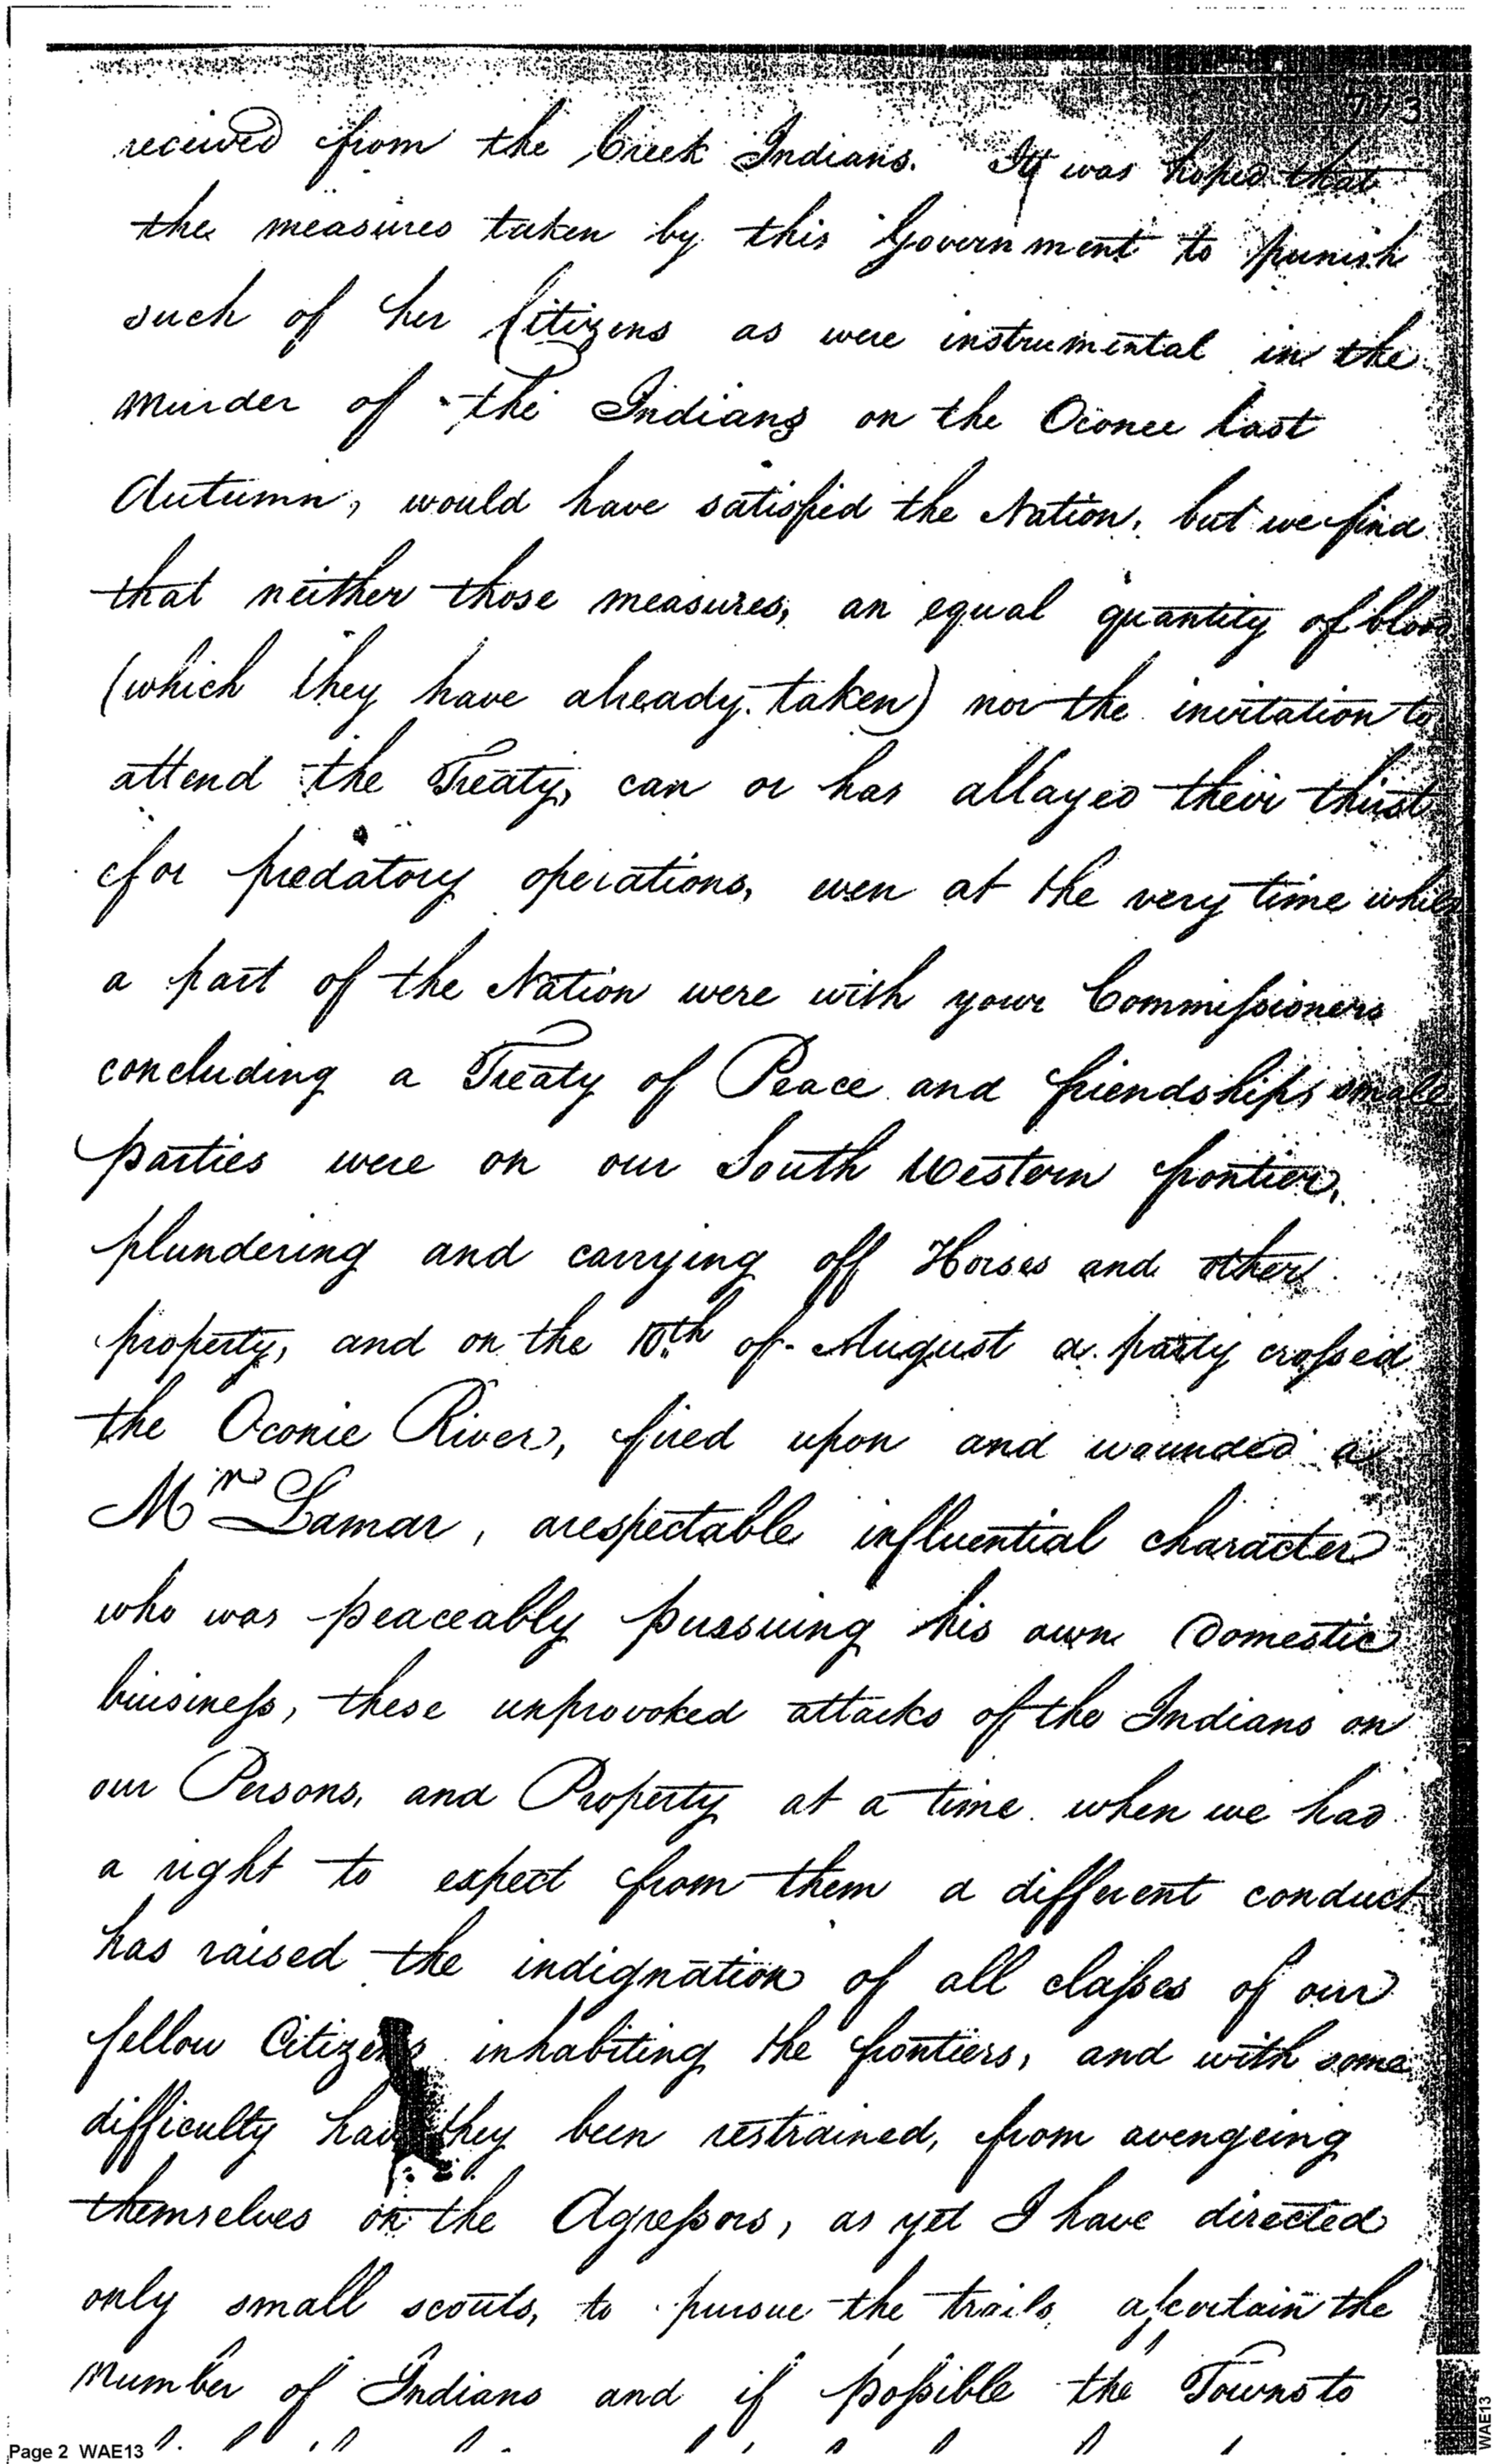 773
received from the Creek Indians. It was hoped that
the measures taken by this Government to punish
such of her Citizens as were instrumental in the
murder of the Indians on the Oconee last
Autumn, would have satisfied the Nation, but we find
that neither those measures, an equal quantity of blood
(which they have already taken) nor the invitation to
attend the Treaty, can or has allayed their thirst
for predatory operations, even at the very time while
a part of the Nation were with your Commissioners
concluding a Treaty of Peace and friendships small
parties were on our South Western frontier,
plundering and carrying off Horses and other
property, and on the 10th of August a party crossed
the Oconie River, fired upon and wounded a
Mr Lamar, a respectable influential character
who was peaceably pursuing his own Domestic
buisiness, these unprovoked attacks of the Indians on
our Persons, and Property at a time when we had
a right to expect from them a different conduct
has raised the indignation of all classes of our
fellow Citizens inhabiting the frontiers, and with some
difficulty have they been restrained, from avengeing
themselves on the Agressors, as yet I have directed
only small scouts, to pursue the trails, ascertain the
Number of Indians and if possible the Towns to
Page 2 WAE13
WAE13